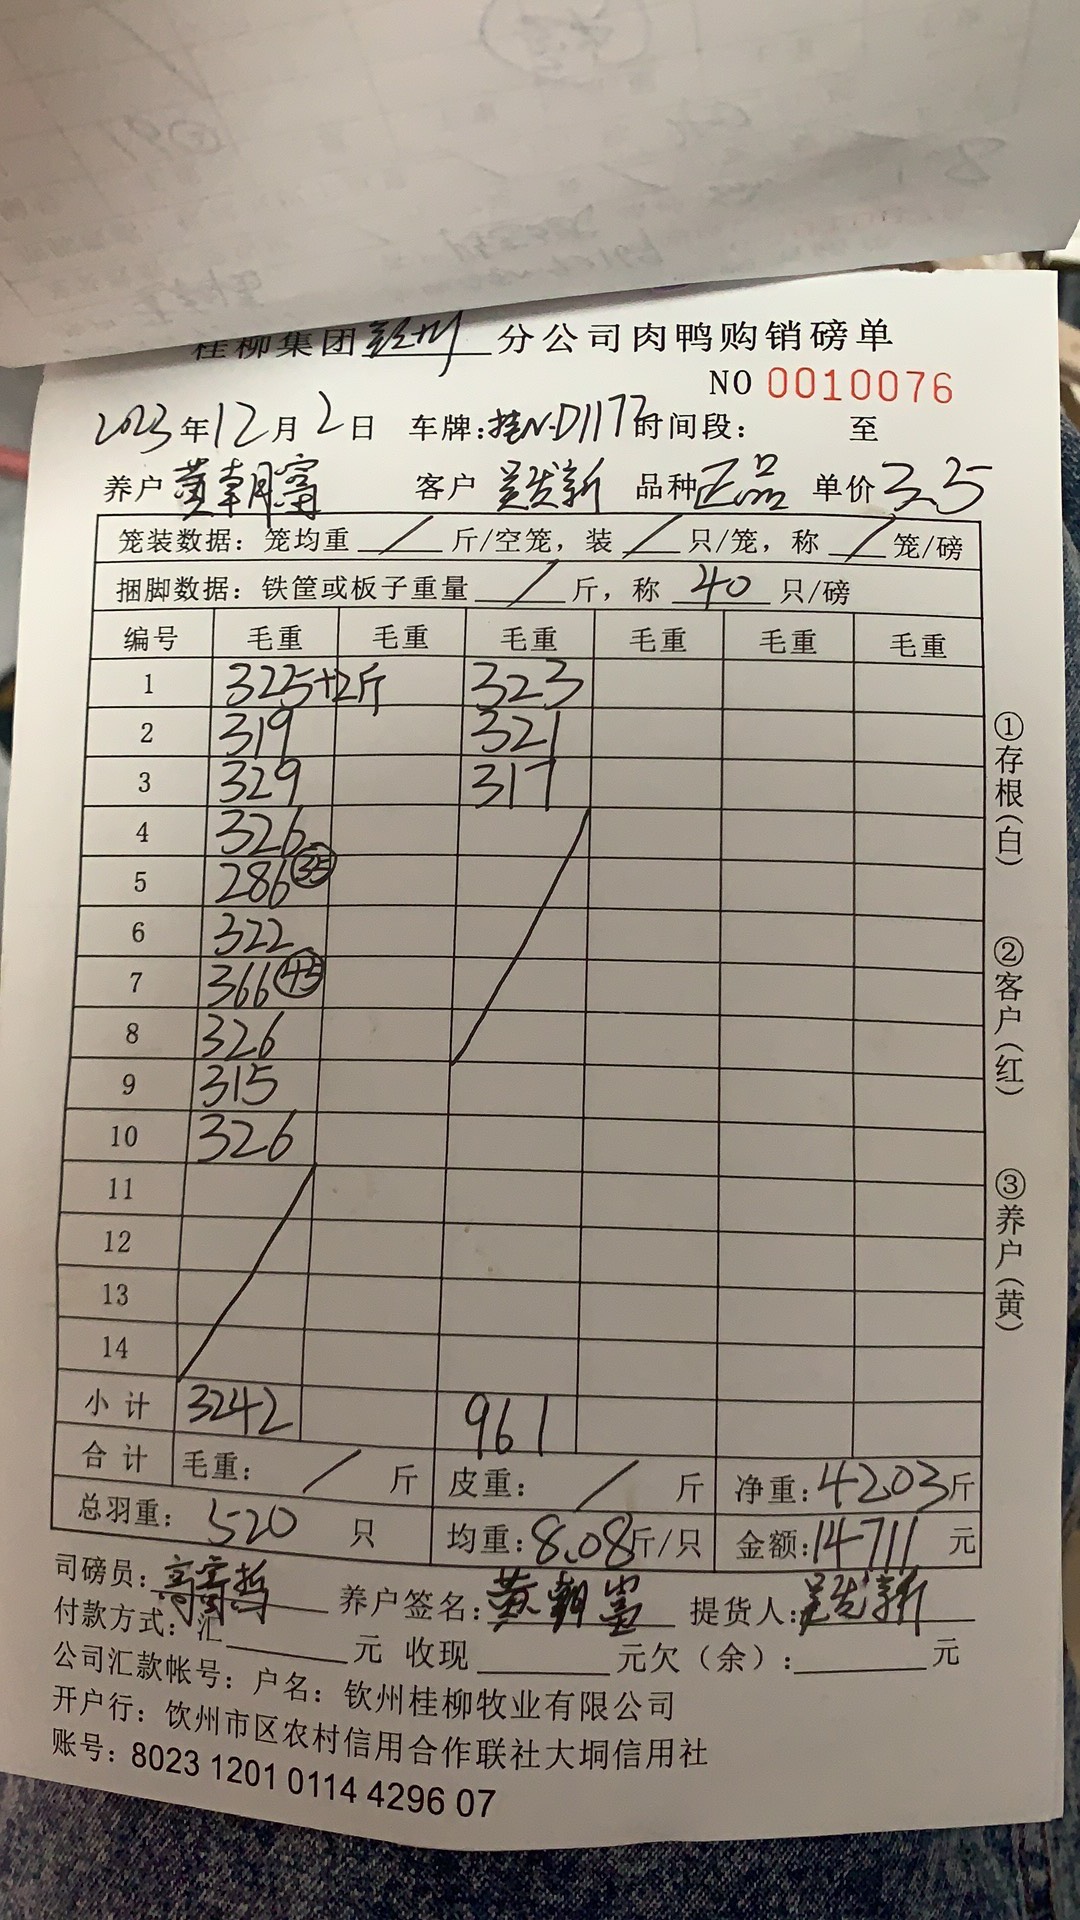 桂柳集团 分公司肉鸭购销磅单
NO 0010076
2023年12月2日 车牌:桂N·D1177 时间段: 至
养户 黄朝富 客户 吴发新 品种 正品 单价 3.5
笼装数据:笼均重 / 斤/空笼,装 / 只/笼,称 / 笼/磅
捆脚数据:铁筐或板子重量 / 斤,称 40 只/磅
编号 毛重 毛重 毛重 毛重 毛重 毛重
1 325+2斤 323
2 319 321
3 329 317
4 326
5 286 35
6 322
7 366 45
8 326
9 315
10 326
11
12
13
14
小计 3242 961
合计 毛重: / 斤 皮重: / 斤 净重:4203斤
总羽重: 520 只 均重:8.08斤/只 金额:14711 元
司磅员: 养户签名:黄朝富 提货人:吴发新
付款方式:汇 元 收现 元欠(余): 元
公司汇款帐号:户名:钦州桂柳牧业有限公司
开户行:钦州市区农村信用合作联社大垌信用社
账号:8023 1201 0114 4296 07
①存根(白)
②客户(红)
③养户(黄)